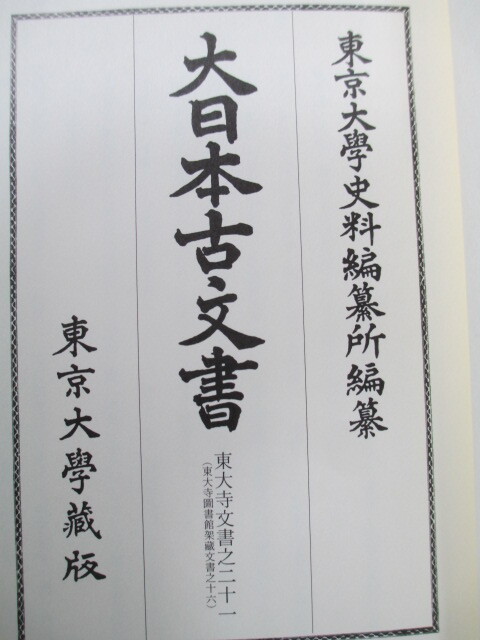 東京大學史料編纂所編纂
大日本古文書
東大寺文書之二十一
(東大寺圖書館架藏文書之十六)
東京大學藏版